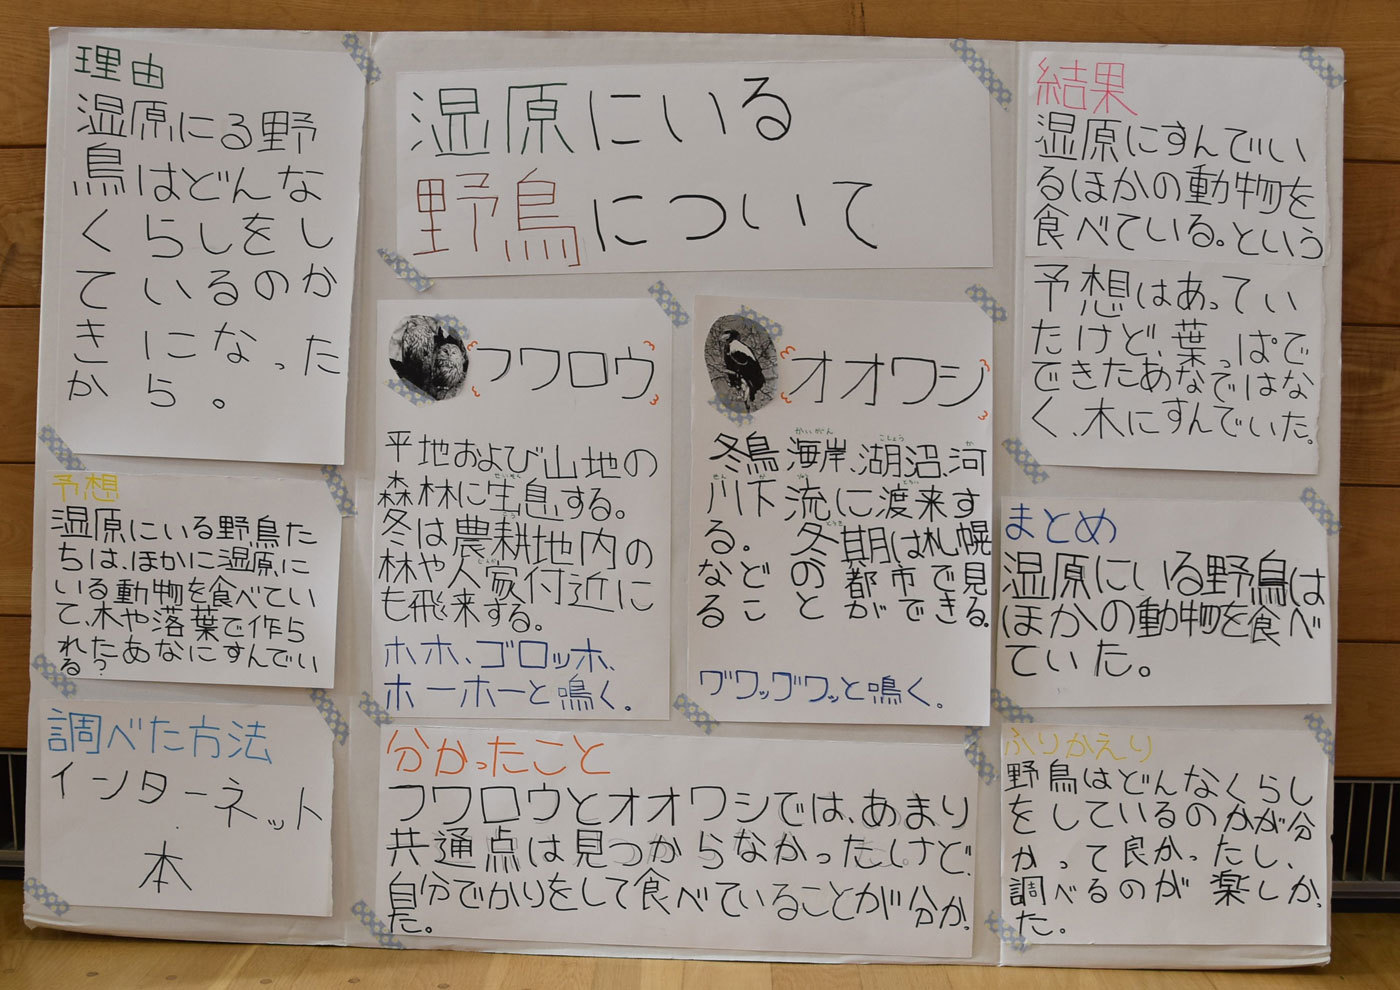 理由
湿原にる野
鳥はどんな
くらしをし
ているのか
きになった
から。
予想
湿原にいる野鳥た
ちは、ほかに湿原に
いる動物を食べてい
て、木や落葉で作ら
れたあなにすんでい
る?
調べた方法
インターネット
本
湿原にいる
野鳥について
フワロウ
平地および山地の
森林に生息する。
冬は農耕地内の
林や人家付近に
も飛来する。
ホホ、ゴロッホ、
ホーホーと鳴く。
オオワシ
冬鳥海岸、湖沼、河
川下流に渡来す
る。冬期は札幌
などの都市で見
ることができる。
グワッグワッと鳴く。
分かったこと
フワロウとオオワシでは、あまり
共通点は見つからなかったけど、
自分でかりをして食べていることが分かっ
た。
結果
湿原にすんでい
るほかの動物を
食べている。という
予想はあってい
たけど、葉っぱで
できたあなではな
く、木にすんでいた。
まとめ
湿原にいる野鳥は
ほかの動物を食べ
ていた。
ふりかえり
野鳥はどんなくらし
をしているのかが分
かって良かったし、
調べるのが楽しかっ
た。